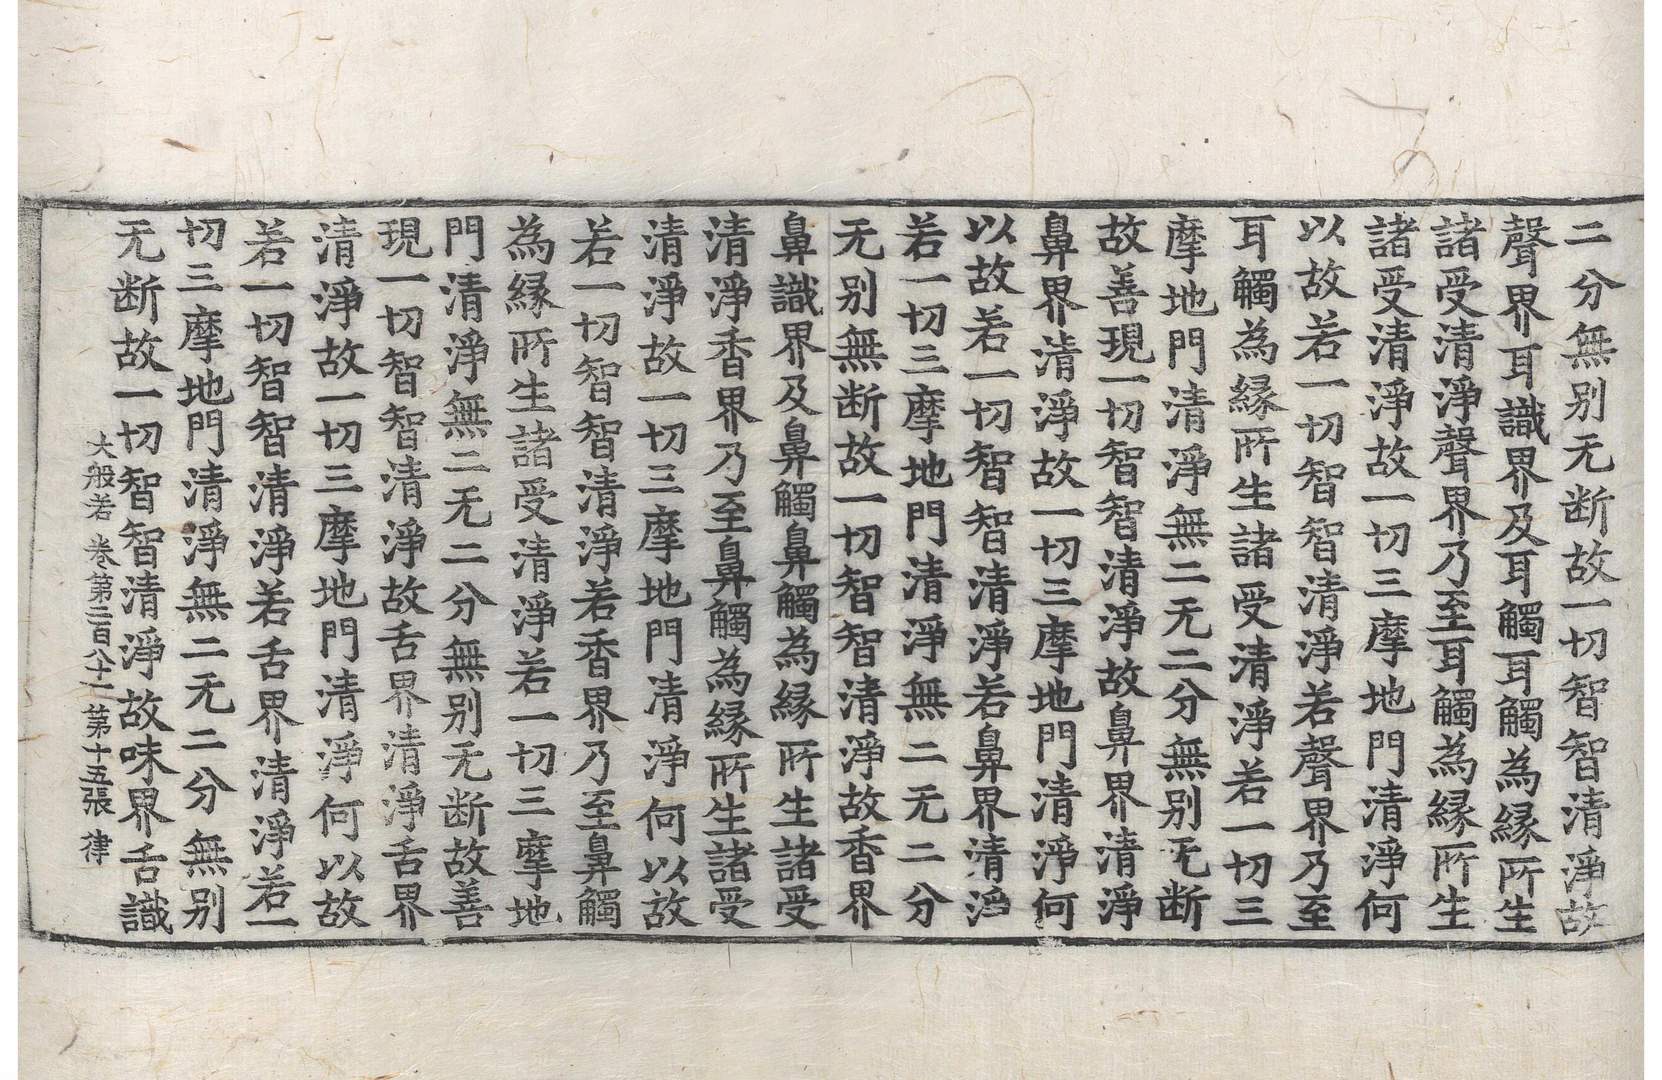 二分無別无断故一切智智清淨故
聲界耳識界及耳觸耳觸為緣所生
諸受清淨聲界乃至耳觸為緣所生
諸受清淨故一切三摩地門清淨何
以故若一切智智清淨若聲界乃至
耳觸為緣所生諸受清淨若一切三
摩地門清淨無二无二分無別无断
故善現一切智智清淨故鼻界清淨
鼻界清淨故一切三摩地門清淨何
以故若一切智智清淨若鼻界清淨
若一切三摩地門清淨無二无二分
无別無断故一切智智清淨故香界
鼻識界及鼻觸鼻觸為緣所生諸受
清淨香界乃至鼻觸為緣所生諸受
清淨故一切三摩地門清淨何以故
若一切智智清淨若香界乃至鼻觸
為緣所生諸受清淨若一切三摩地
門清淨無二无二分無別无断故善
現一切智智清淨故舌界清淨舌界
清淨故一切三摩地門清淨何以故
若一切智智清淨若舌界清淨若一
切三摩地門清淨無二无二分無別
无断故一切智智清淨故味界舌識
大般若 卷第二百八十一 第十五張 律